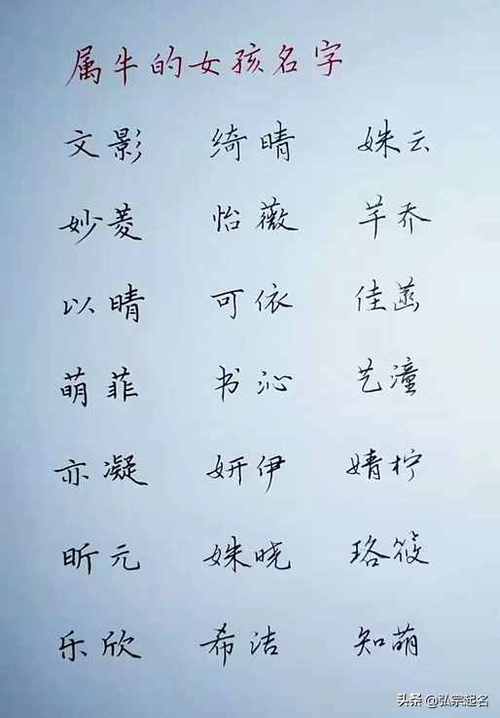 属牛的女孩名字
文影 绮晴 姝云
妙菱 怡薇 芊乔
以晴 可依 佳菡
萌菲 书沁 艺潼
亦凝 妍伊 婧柠
昕元 姝晓 珞筱
乐欣 希洁 知萌
头条 @弘宗起名